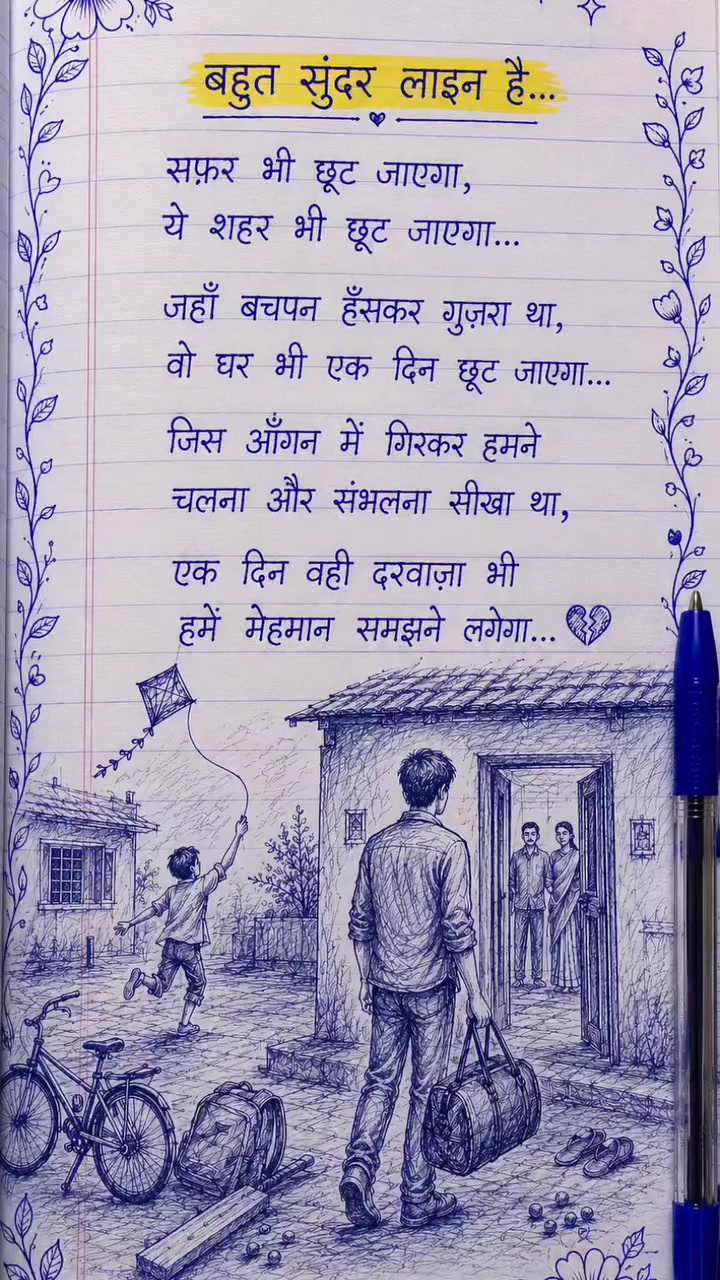 बहुत सुंदर लाइन है...
सफ़र भी छूट जाएगा,
ये शहर भी छूट जाएगा...
जहाँ बचपन हँसकर गुज़रा था,
वो घर भी एक दिन छूट जाएगा...
जिस आँगन में गिरकर हमने
चलना और संभलना सीखा था,
एक दिन वही दरवाज़ा भी
हमें मेहमान समझने लगेगा...